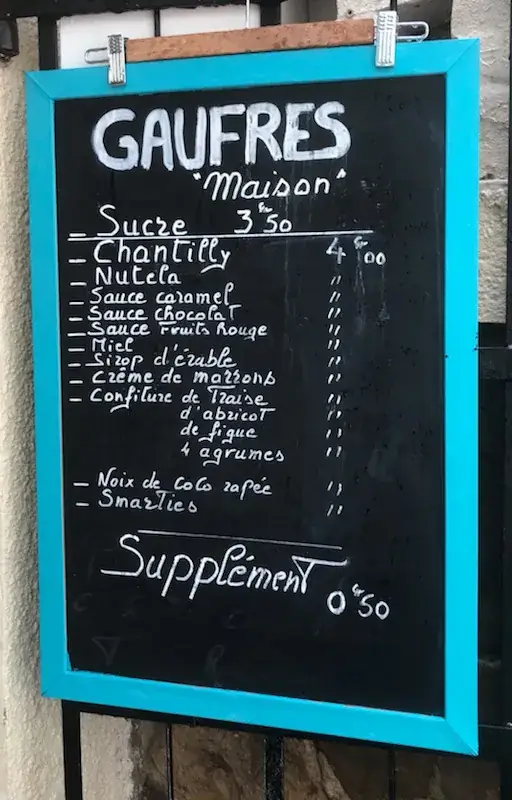 GAUFRES
"Maison"
_ Sucre 3€50
_ Chantilly 4€00
_ Nutela "
_ Sauce caramel "
_ Sauce chocolat "
_ Sauce Fruits Rouge "
_ Miel "
_ Sirop d'érable "
_ Crême de marrons "
_ Confiture de fraise "
d'abricot "
de figue "
4 agrumes "
_ Noix de coco rapée "
_ Smarties "
Supplément 0€50